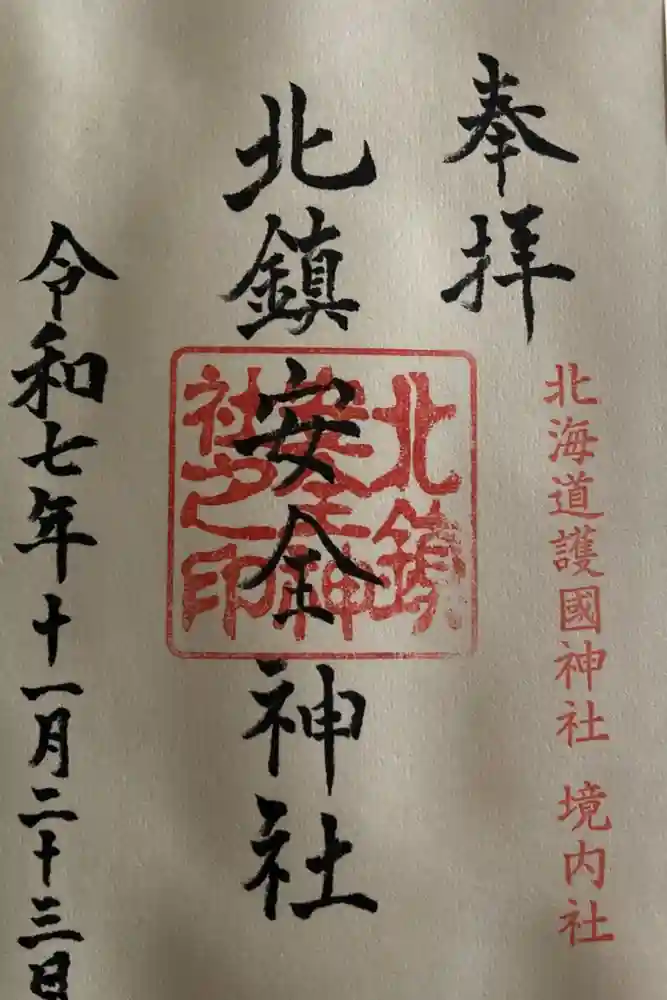 奉拝
北海道護國神社 境内社
北鎮安全神社
北鎮
安全神
社之印
令和七年十一月二十三日